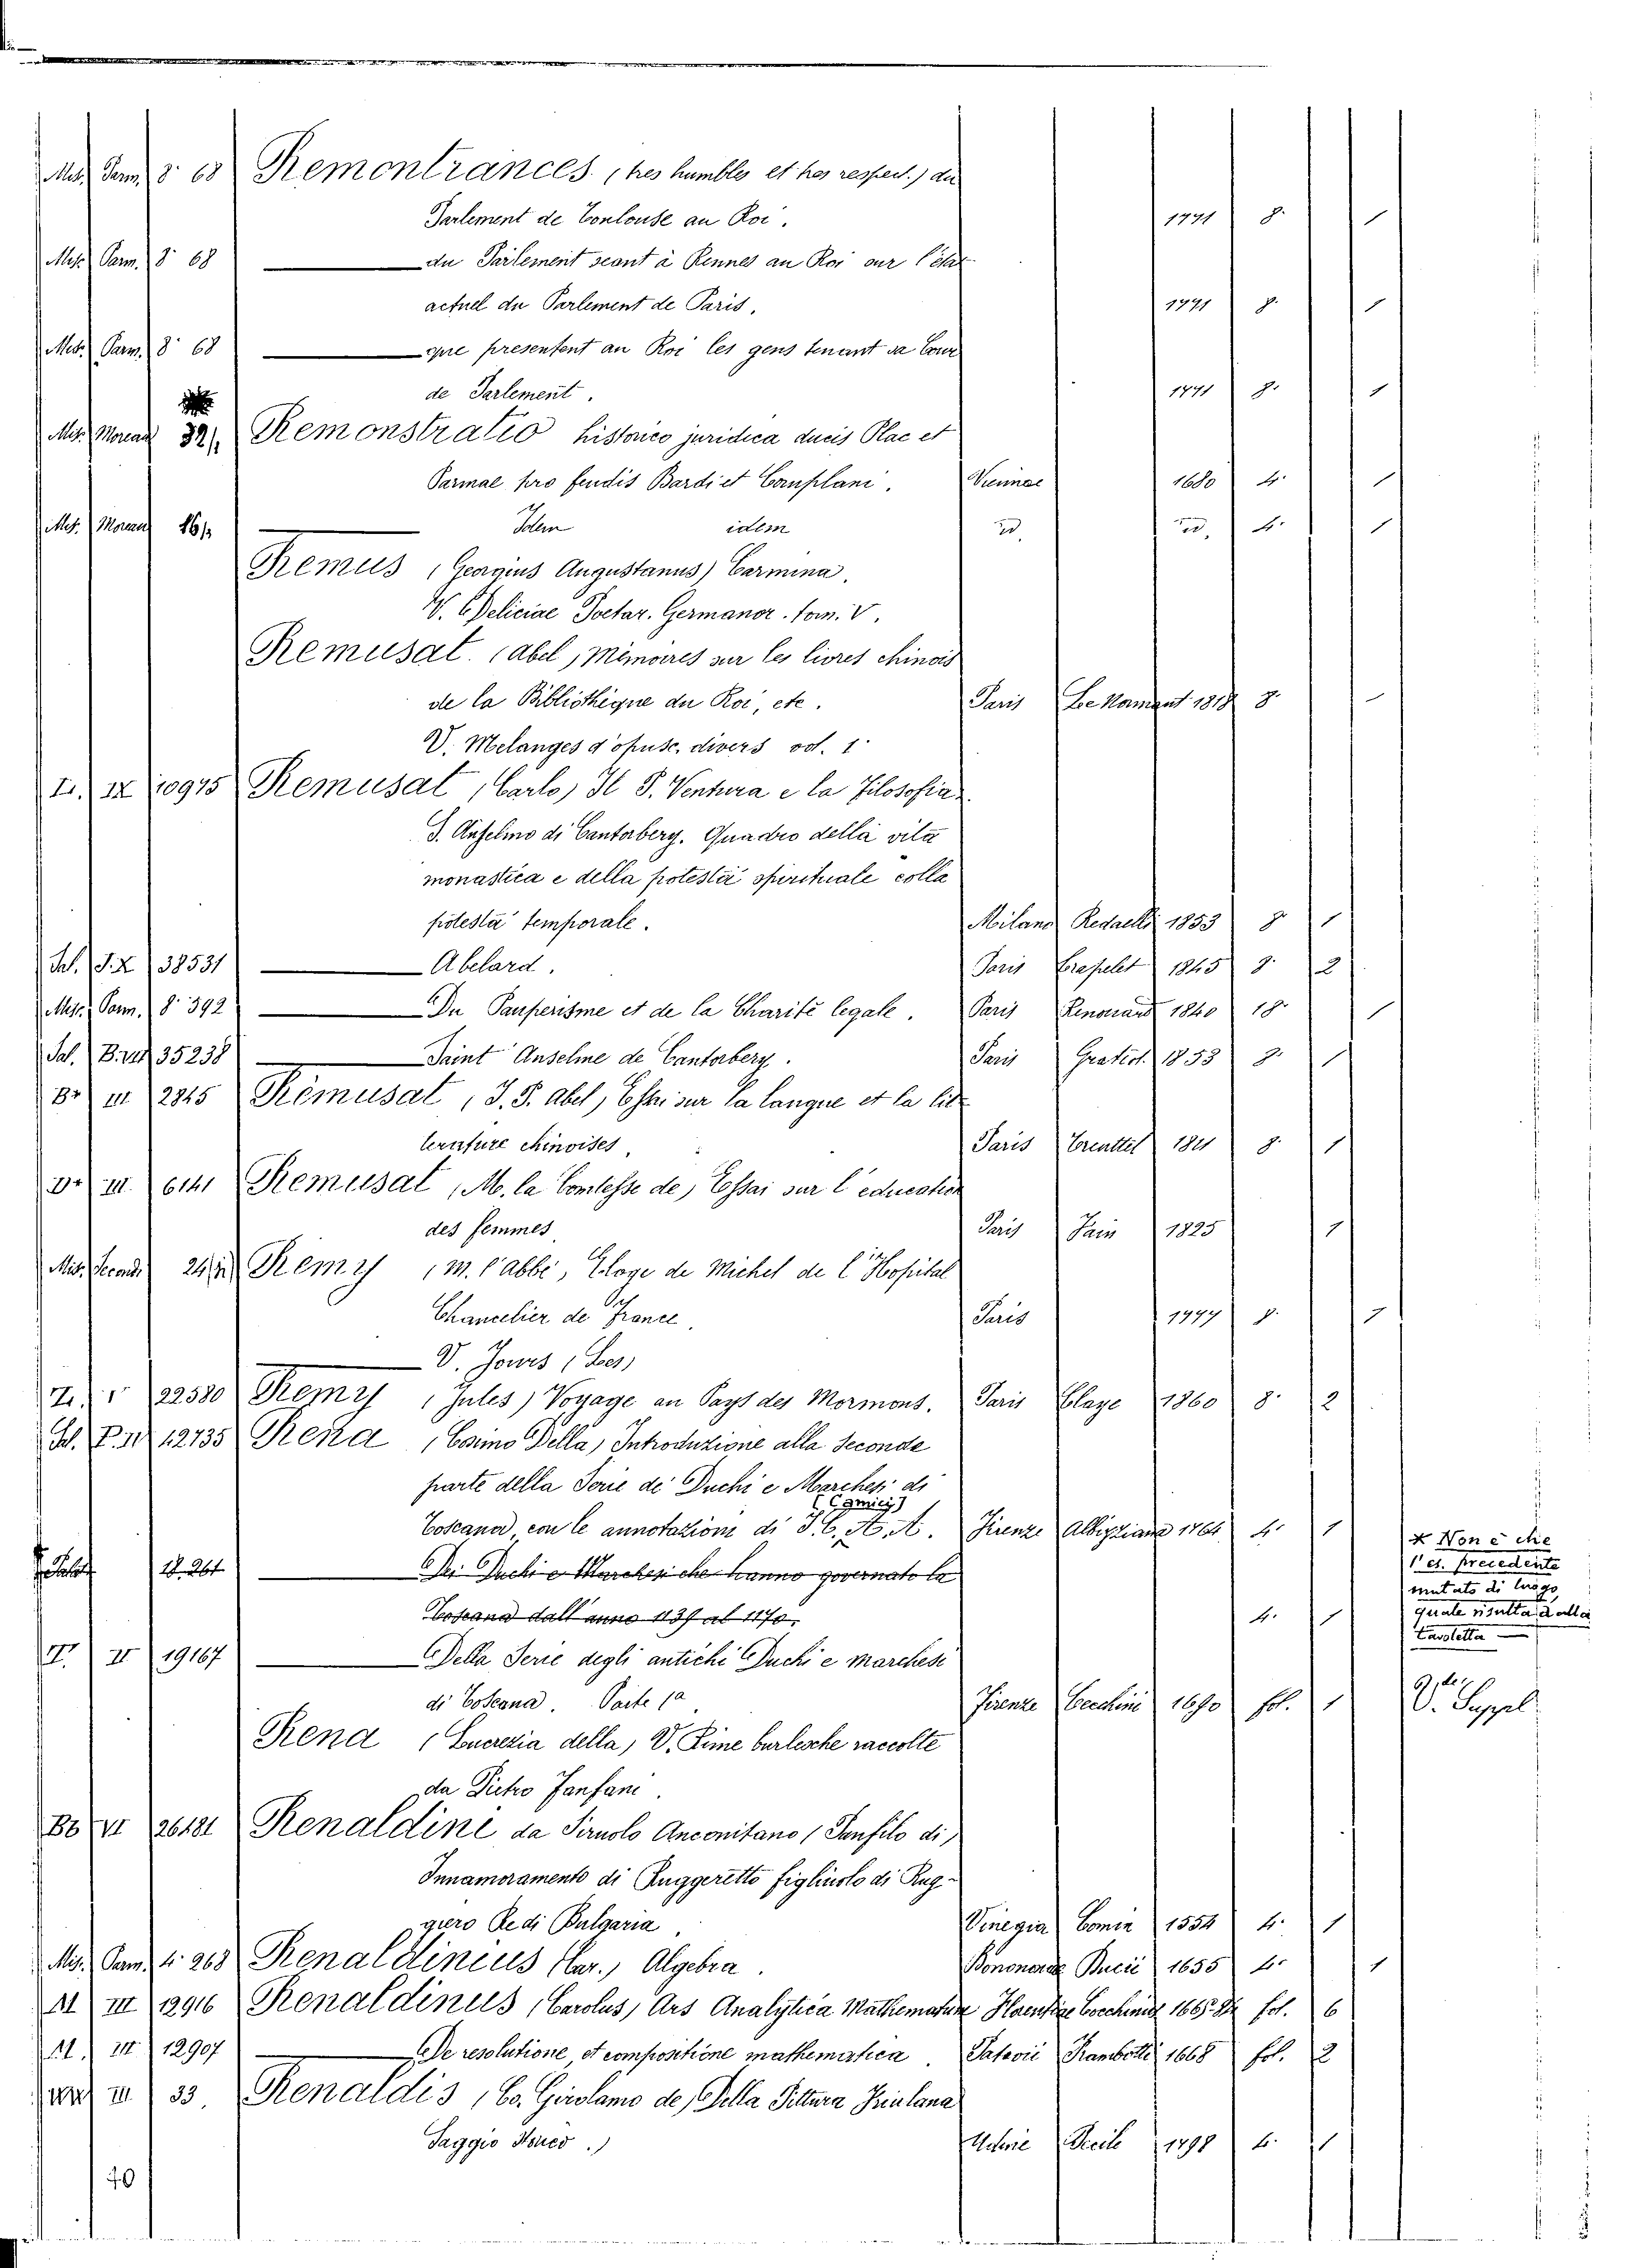 Mis. Parm. 8. 68 Remontrances (tres humbles et tres respect.) du
Parlement de Toulouse au Roi. 1771 8. 1
Mis. Parm. 8. 68 du Parlement seant à Rennes au Roi sur l'état
actuel du Parlement de Paris. 1771 8. 1
Mis. Parm. 8. 68 que presentent au Roi les gens tenant sa Cour
de Parlement. 1771 8. 1
Mis. Moreau 32/1 Remonstratio historico juridica ducis Plac et
Parmae pro feudis Bardi et Complani. Viennae 1680 4. 1
Mis. Moreau 16/ Idem idem id. id. 4. 1
Remus (Georgius Augustanus) Carmina.
V. Deliciae Poetar. Germanor. tom. V.
Remusat (Abel) Mémoires sur les livres chinois
de la Bibliothèque du Roi, etc. Paris Le Normant 1818 8.
V. Melanges d'opusc. divers vol. 1
IX 10975 Remusat (Carlo) Il P. Ventura e la Filosofia
S. Anselmo di Cantorbery. Quadro della vita
monastica e della potestà spirituale colla
potestà temporale. Milano Redaelli 1853 8 1
38531 Abelard. Paris Crapelet 1845 8. 2
Mis. Parm. 8. 392 Du Pauperisme et de la Charité legale. Paris Renouard 1840 18. 1
35238 Saint Anselme de Cantorbery. Paris Gratiot 1853 8. 1
III 2845 Rémusat (J. P. Abel) Essai sur la langue et la lit-
terature chinoises Paris Treuttel 1811 8. 1
III. 6141 Remusat (M. la Comtesse de) Essai sur l'education
des femmes Paris 1825 1
Mis. Remy (M. l'abbé) Eloge de Michel de l'Hopital
Chancelier de France. Paris 1777 8. 1
V. Jours (Les)
22580 Remy (Jules) Voyage au Pays des Mormons. Paris Claye 1860 8. 2
12735 Rena (Cosimo Della) Introduzione alla Seconda
parte della Serie de' Duchi e Marchesi di
(Camici)
Toscana, con le annotazioni di I. C. A. A. Firenze Albiziniana 1764 4. 1
18.264 Dei Duchi e Marchesi che hanno governato la
Toscana dall'anno 1139 al 1170. 4. 1
× Non è che
l'es. precedente
mutato di luogo,
quale risulta dalla
tavoletta
II 19167 Della Serie degli antichi Duchi e marchesi
di Toscana. Parte 1a Firenze Cecchini 1690 fol. 1
V. Suppl.
Rena (Lucrezia della) V. Rime burlesche raccolte
da Pietro Fanfani.
VI 26181 Renaldini da Siruolo Anconitano (Panfilo di)
Innamoramento di Ruggeretto figliuolo di Rug-
giero Re di Bulgaria. Vinegia Comin 1554 4. 1
Mis. Parm. 4. 268 Renaldinius (Car.) Algebra. Bononiae 1655 4. 1
III 12916 Renaldinus (Carolus) Ars Analytica Mathematum Florentiae fol. 6
III 12907 De resolutione, et compositione mathematica. Patavii Frambotti 1668 fol. 2
III 33 Renaldis (Co. Girolamo de) Della Pittura Friulana
Saggio Storico.) Udine 1798 4. 1
40